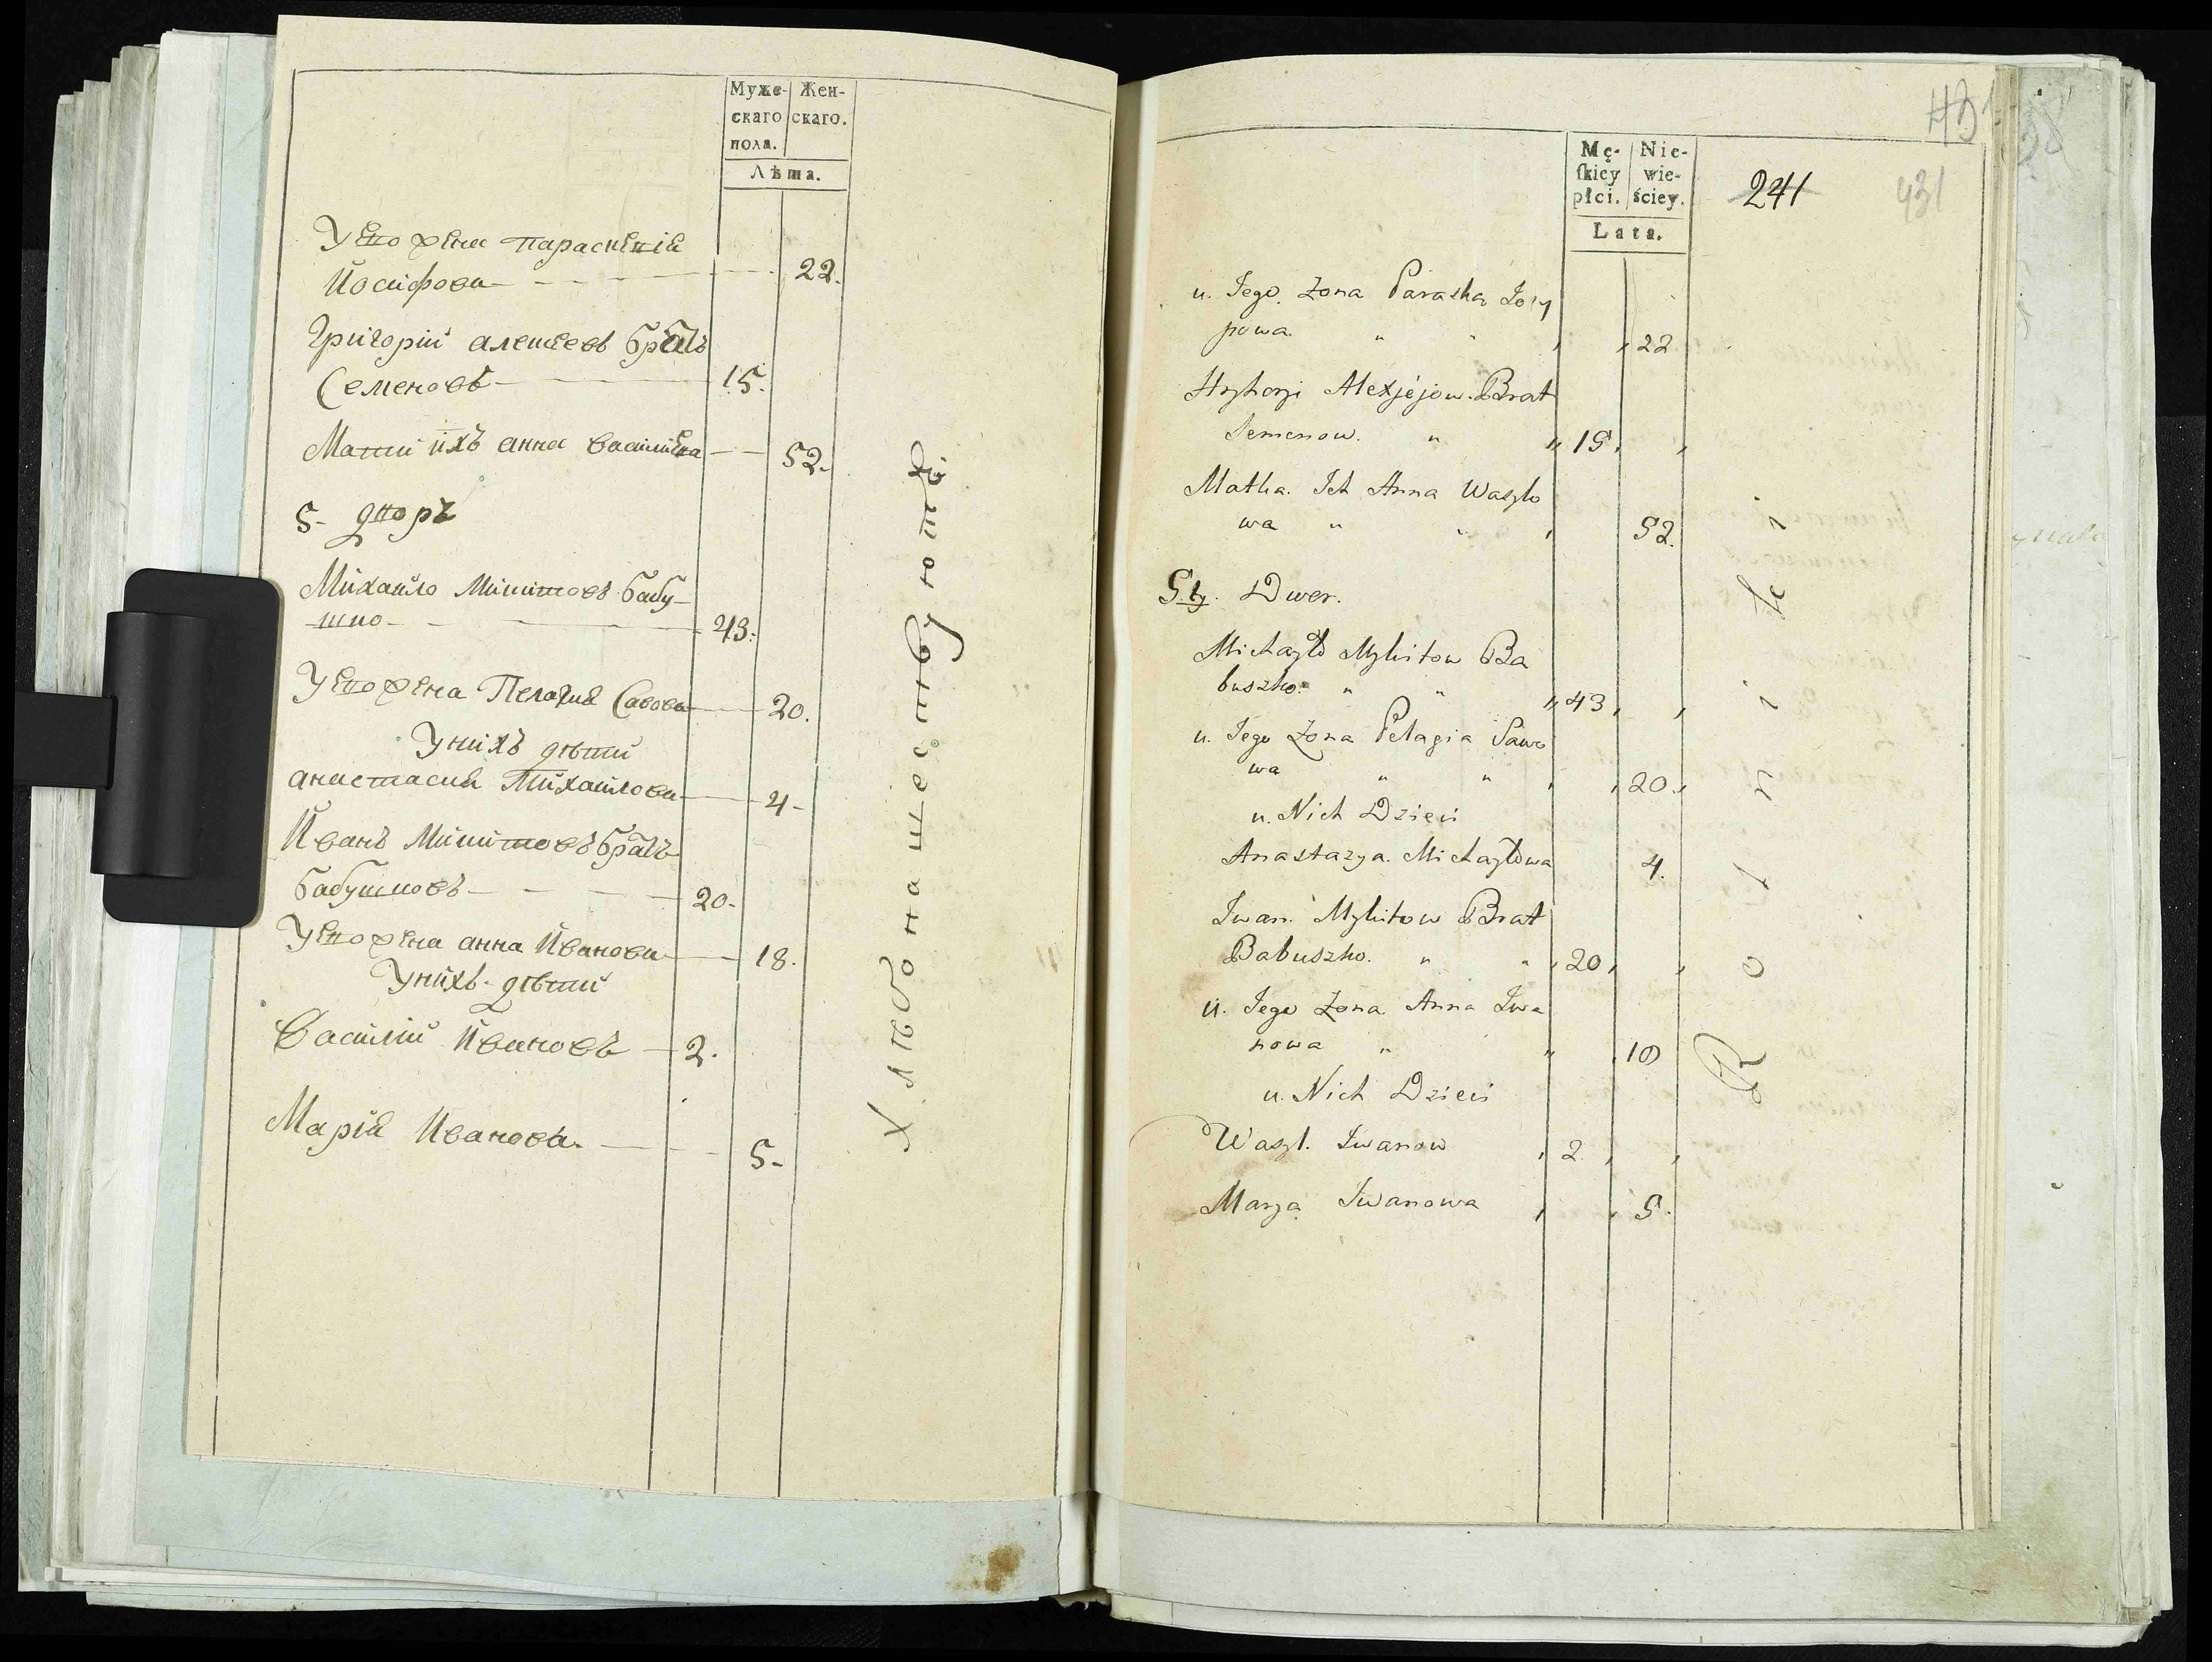 Муже- Жен-
скаго скаго.
пола.
Лѣта.
У его жена параскевія
Йосифова 22.
Григорій алексеевъ братъ
Семеновъ 15.
Матки ихъ анна василіева 52.
5- дворъ
Михайло Микитовъ бабу-
шко 43.
У его жена Пелагия Савова 20.
У нихъ дѣти
анастасия Михайлова 4-
Иванъ Микитовъ братъ
бабушковъ 20.
У его жена анна Иванова 18.
У нихъ дѣти
Василій Ивановъ 2.
Марія Иванова. 5-
Хлѣбопашествуютъ
Mę- Nie-
skiey wie-
płci. ściey.
Lata.
241
431
u. Jego. Zona Paraska Josy
powa. " " 22
Hryhoryi Alexjejow. Brat
Semenow. " " 15.
Matka. Ich Anna Wasylo
wa " " 52.
5.ty. Dwor.
Michayło Mykitow Ba
buszko. " " 43
u. Jego Zona Pelagia Sawo
wa " " 20.
u. Nich Dzieci
Anastazya. Michayłowa 4.
Iwan. Mykitow Brat
Babuszko. " " 20
u. Jego Zona Anna Iwa
nowa " " 18
u. Nich Dzieci
Wasyl. Iwanow 2
Marya Iwanowa 5.
Rolniki